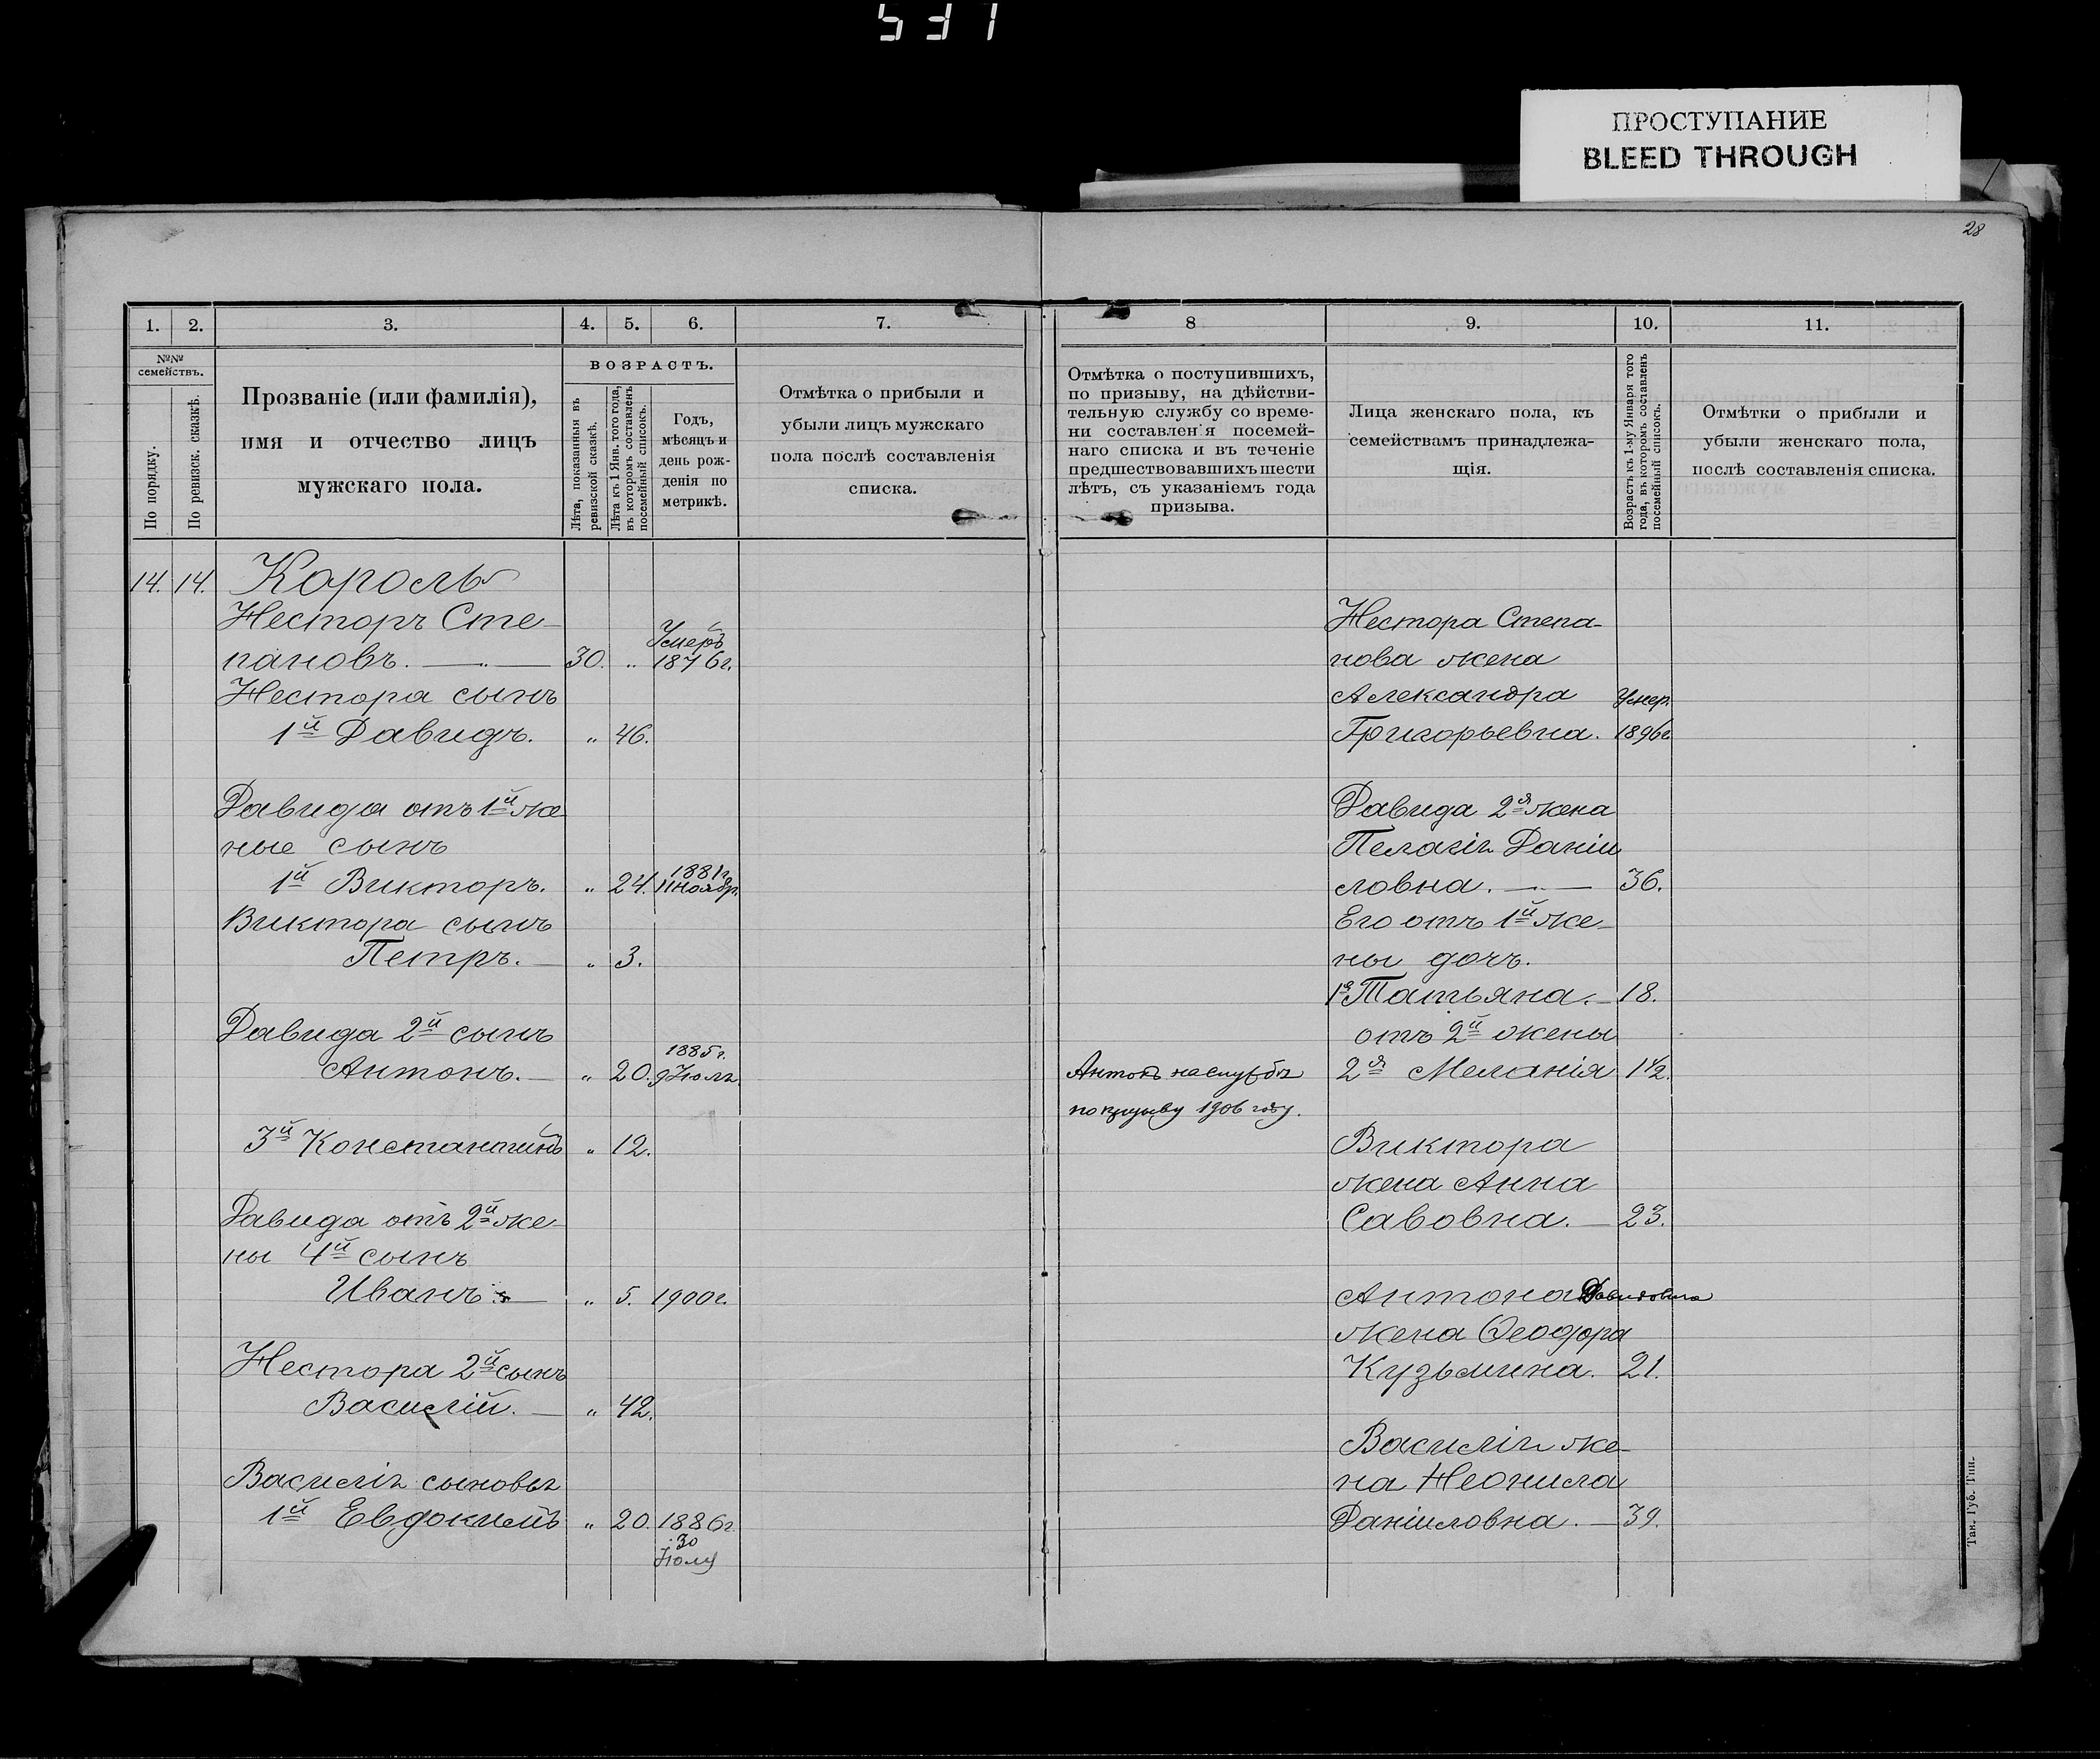 531
ПРОСТУПАНИЕ
BLEED THROUGH
28
1.
2.
3.
4.
5.
6.
7.
№№ семействъ.
По порядку.
По ревизск. сказкѣ.
Прозваніе (или фамилія),
имя и отчество лицъ
мужскаго пола.
ВОЗРАСТЪ.
Лѣта, показанныя въ
ревизской сказкѣ.
Лѣта къ 1 Янв. того года,
въ которомъ составленъ
посемейный списокъ.
Годъ,
мѣсяцъ и
день рож-
денія по
метрикѣ.
Отмѣтка о прибыли и
убыли лицъ мужскаго
пола послѣ составленія
списка.
14. 14. Король
Несторъ Сте-
пановъ. 30. „ Умеръ 1876 г.
Нестора сынъ
1й Давидъ. „ 46.
Давида отъ 1й же
ные сынъ
1й Викторъ. „ 24. 1881 г. 11 ноябр.
Виктора сынъ
Петръ. „ 3.
Давида 2й сынъ
Антонъ. „ 20. 1885 г. 9 Іюля
3й Константинъ „ 12.
Давида отъ 2й же-
ны 4й сынъ
Иванъ „ 5. 1900 г.
Нестора 2й сынъ
Василій. „ 42.
Василія сыновья
1й Евдокимъ „ 20. 1886 г.
30
Іюля
8
9.
10.
11.
Отмѣтка о поступившихъ,
по призыву, на дѣйстви-
тельную службу со време-
ни составленія посемей-
наго списка и въ теченіе
предшествовавшихъ шести
лѣтъ, съ указаніемъ года
призыва.
Лица женскаго пола, къ
семействамъ принадлежа-
щія.
Возрастъ къ 1-му Января того
года, въ которомъ составленъ
посемейный списокъ.
Отмѣтки о прибыли и
убыли женскаго пола,
послѣ составленія списка.
Нестора Степа-
нова жена
Александра Умер.
Григорьевна. 1896 г.
Давида 2я жена
Пелагія Даніи
ловна. 36.
Его отъ 1й же-
ны доч.
1я Татьяна. 18.
отъ 2й жены
Антонъ на службѣ 2я Меланія 1 1/2.
по призыву 1906 году.
Виктора
жена Анна
Савовна. 23.
Антона Давидовича
жена Ѳеодора
Кузьмина. 21.
Василія же-
на Неонила
Даніиловна. 39.
Тан. Губ. Тип.